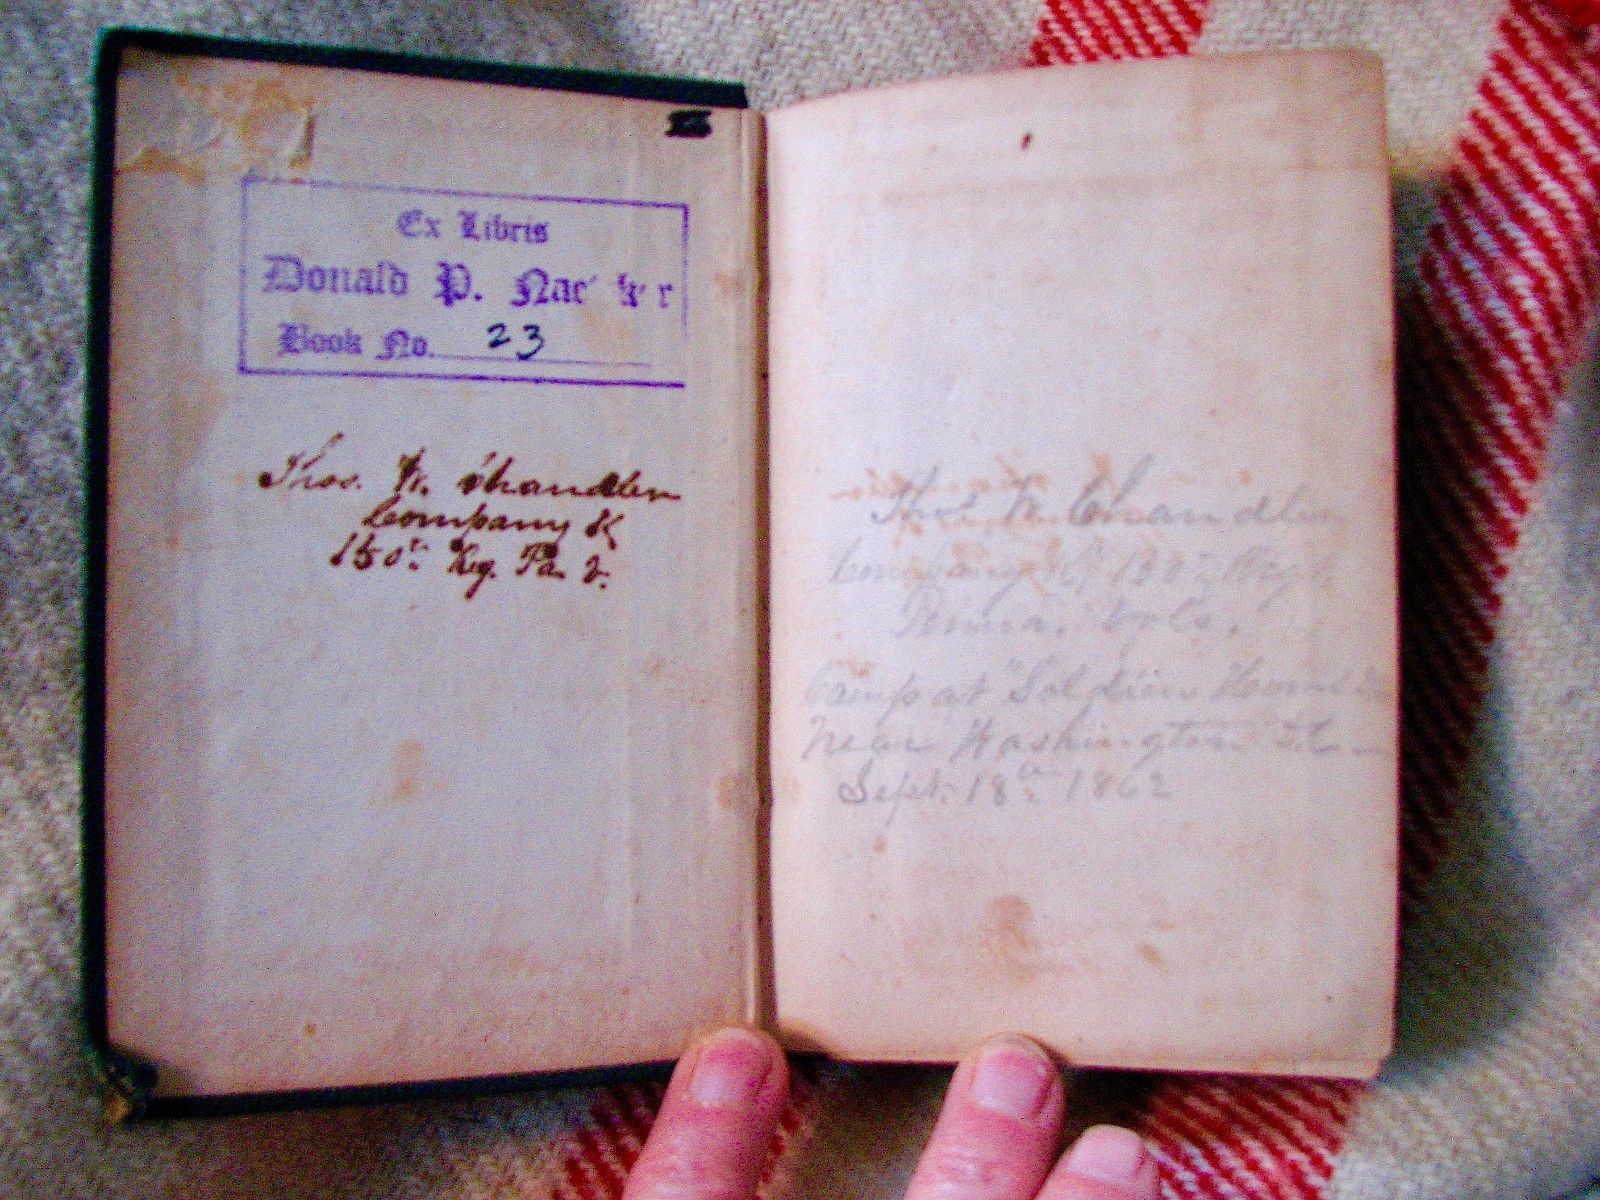 Ex Libris
Donald P.
Book No. 23
Thos. W. Chandler
Company K
150th Reg. Pa. V.
Thos. W. Chandler
Company K, 150th Regt.
Penna. Vols.
Camp at "Soldiers Home"
Near Washington
Sept. 18th 1862